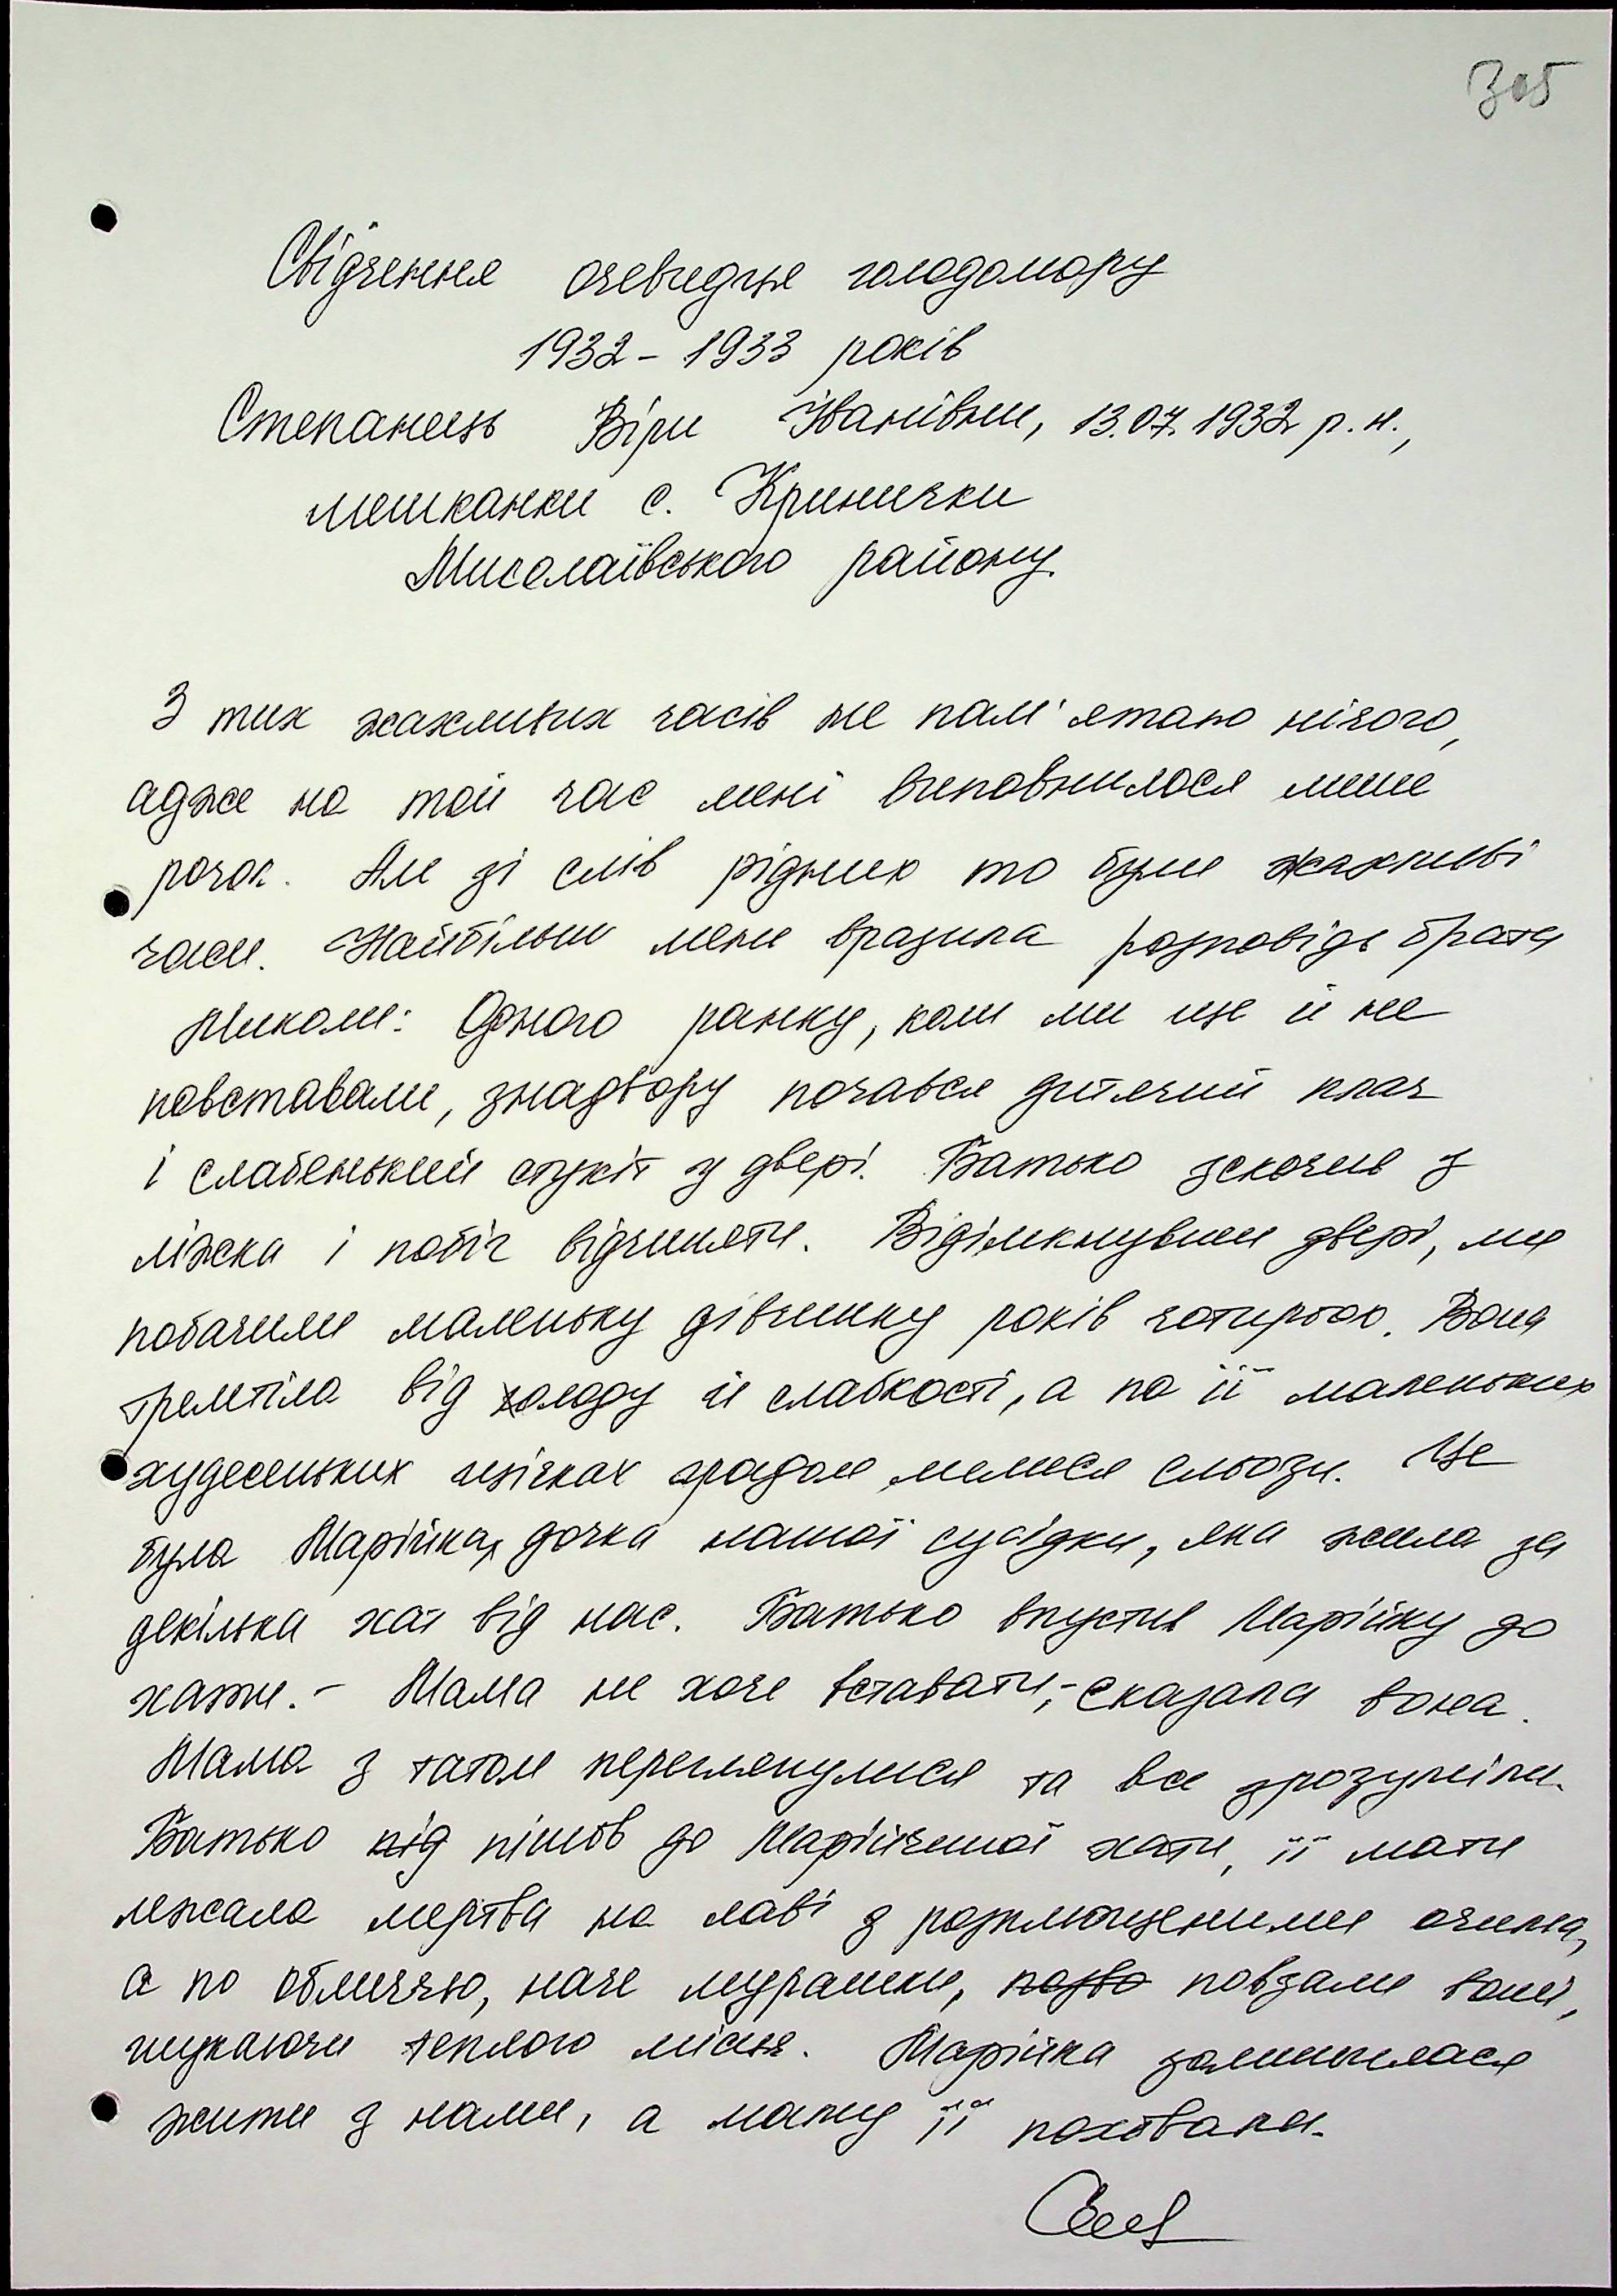 305
Свідчення очевидця голодомору
1932 - 1933 років
Степанець Віри Іванівни, 13.07.1932 р.н.,
мешканки с. Кринички
Миколаївського району.
З тих жахливих часів не пам'ятаю нічого,
адже на той час мені виповнилося лише
рочок. Але зі слів рідних то були жахливі
часи. Найбільш мене вразила розповідь брата
Миколи: Одного ранку, коли ми ще й не
повставали, знадвору почався дитячий плач
і слабенький стукіт у двері. Батько зскочив з
ліжка і побіг відчиняти. Відімкнувши двері, ми
побачили маленьку дівчинку років чотирьох. Вона
тремтіла від холоду й слабкості, а по її маленьких
худесеньких щічках градом лилися сльози. Це
була Марійка, дочка нашої сусідки, яка жила за
декілька хат від нас. Батько впустив Марійку до
хати. - Мама не хоче вставати, - сказала вона.
Мама з татом переглянулися та все зрозуміли.
Батько під пішов до Марійчиної хати, її мати
лежала мертва на лаві з розплющеними очима,
а по обличчю, наче мурашки, повзали воші,
шукаючи теплого місця. Марійка залишилася
жити з нами, а маму її поховали.